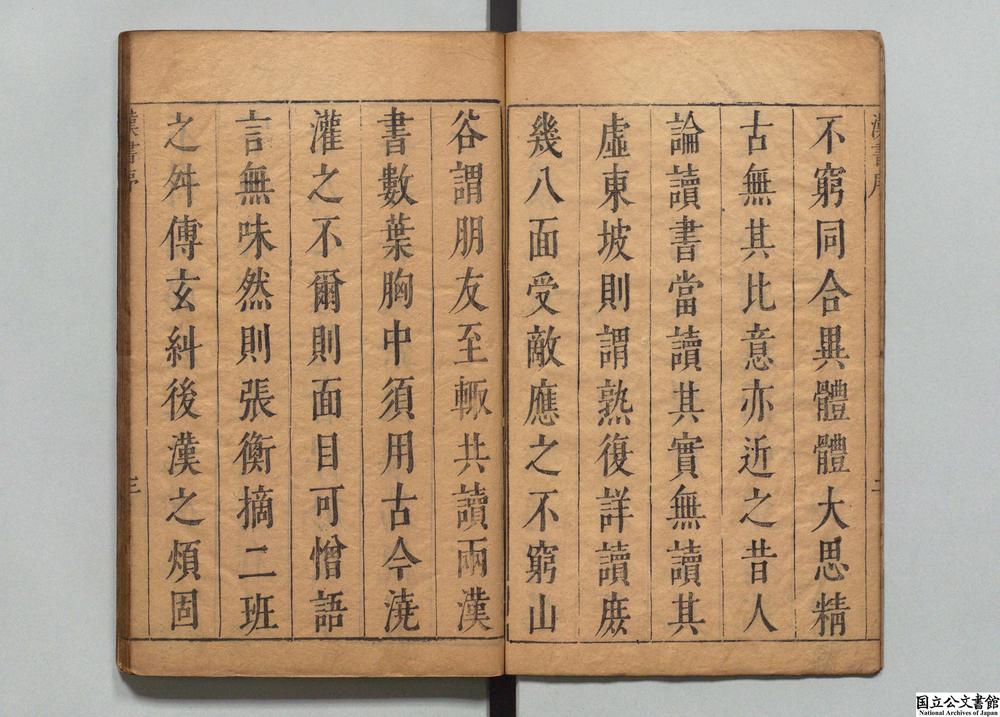 不窮同合異體體大思精
古無其比意亦近之昔人
論讀書當讀其實無讀其
虛東坡則謂熟復詳讀庶
幾八面受敵應之不窮山
谷謂朋友至輙共讀兩漢
書數葉胸中須用古今澆
灌之不爾則面目可憎語
言無味然則張衡摘二班
之舛傳玄糾後漢之煩固
漢書序
二
漢書序
三
国立公文書館
National Archives of Japan